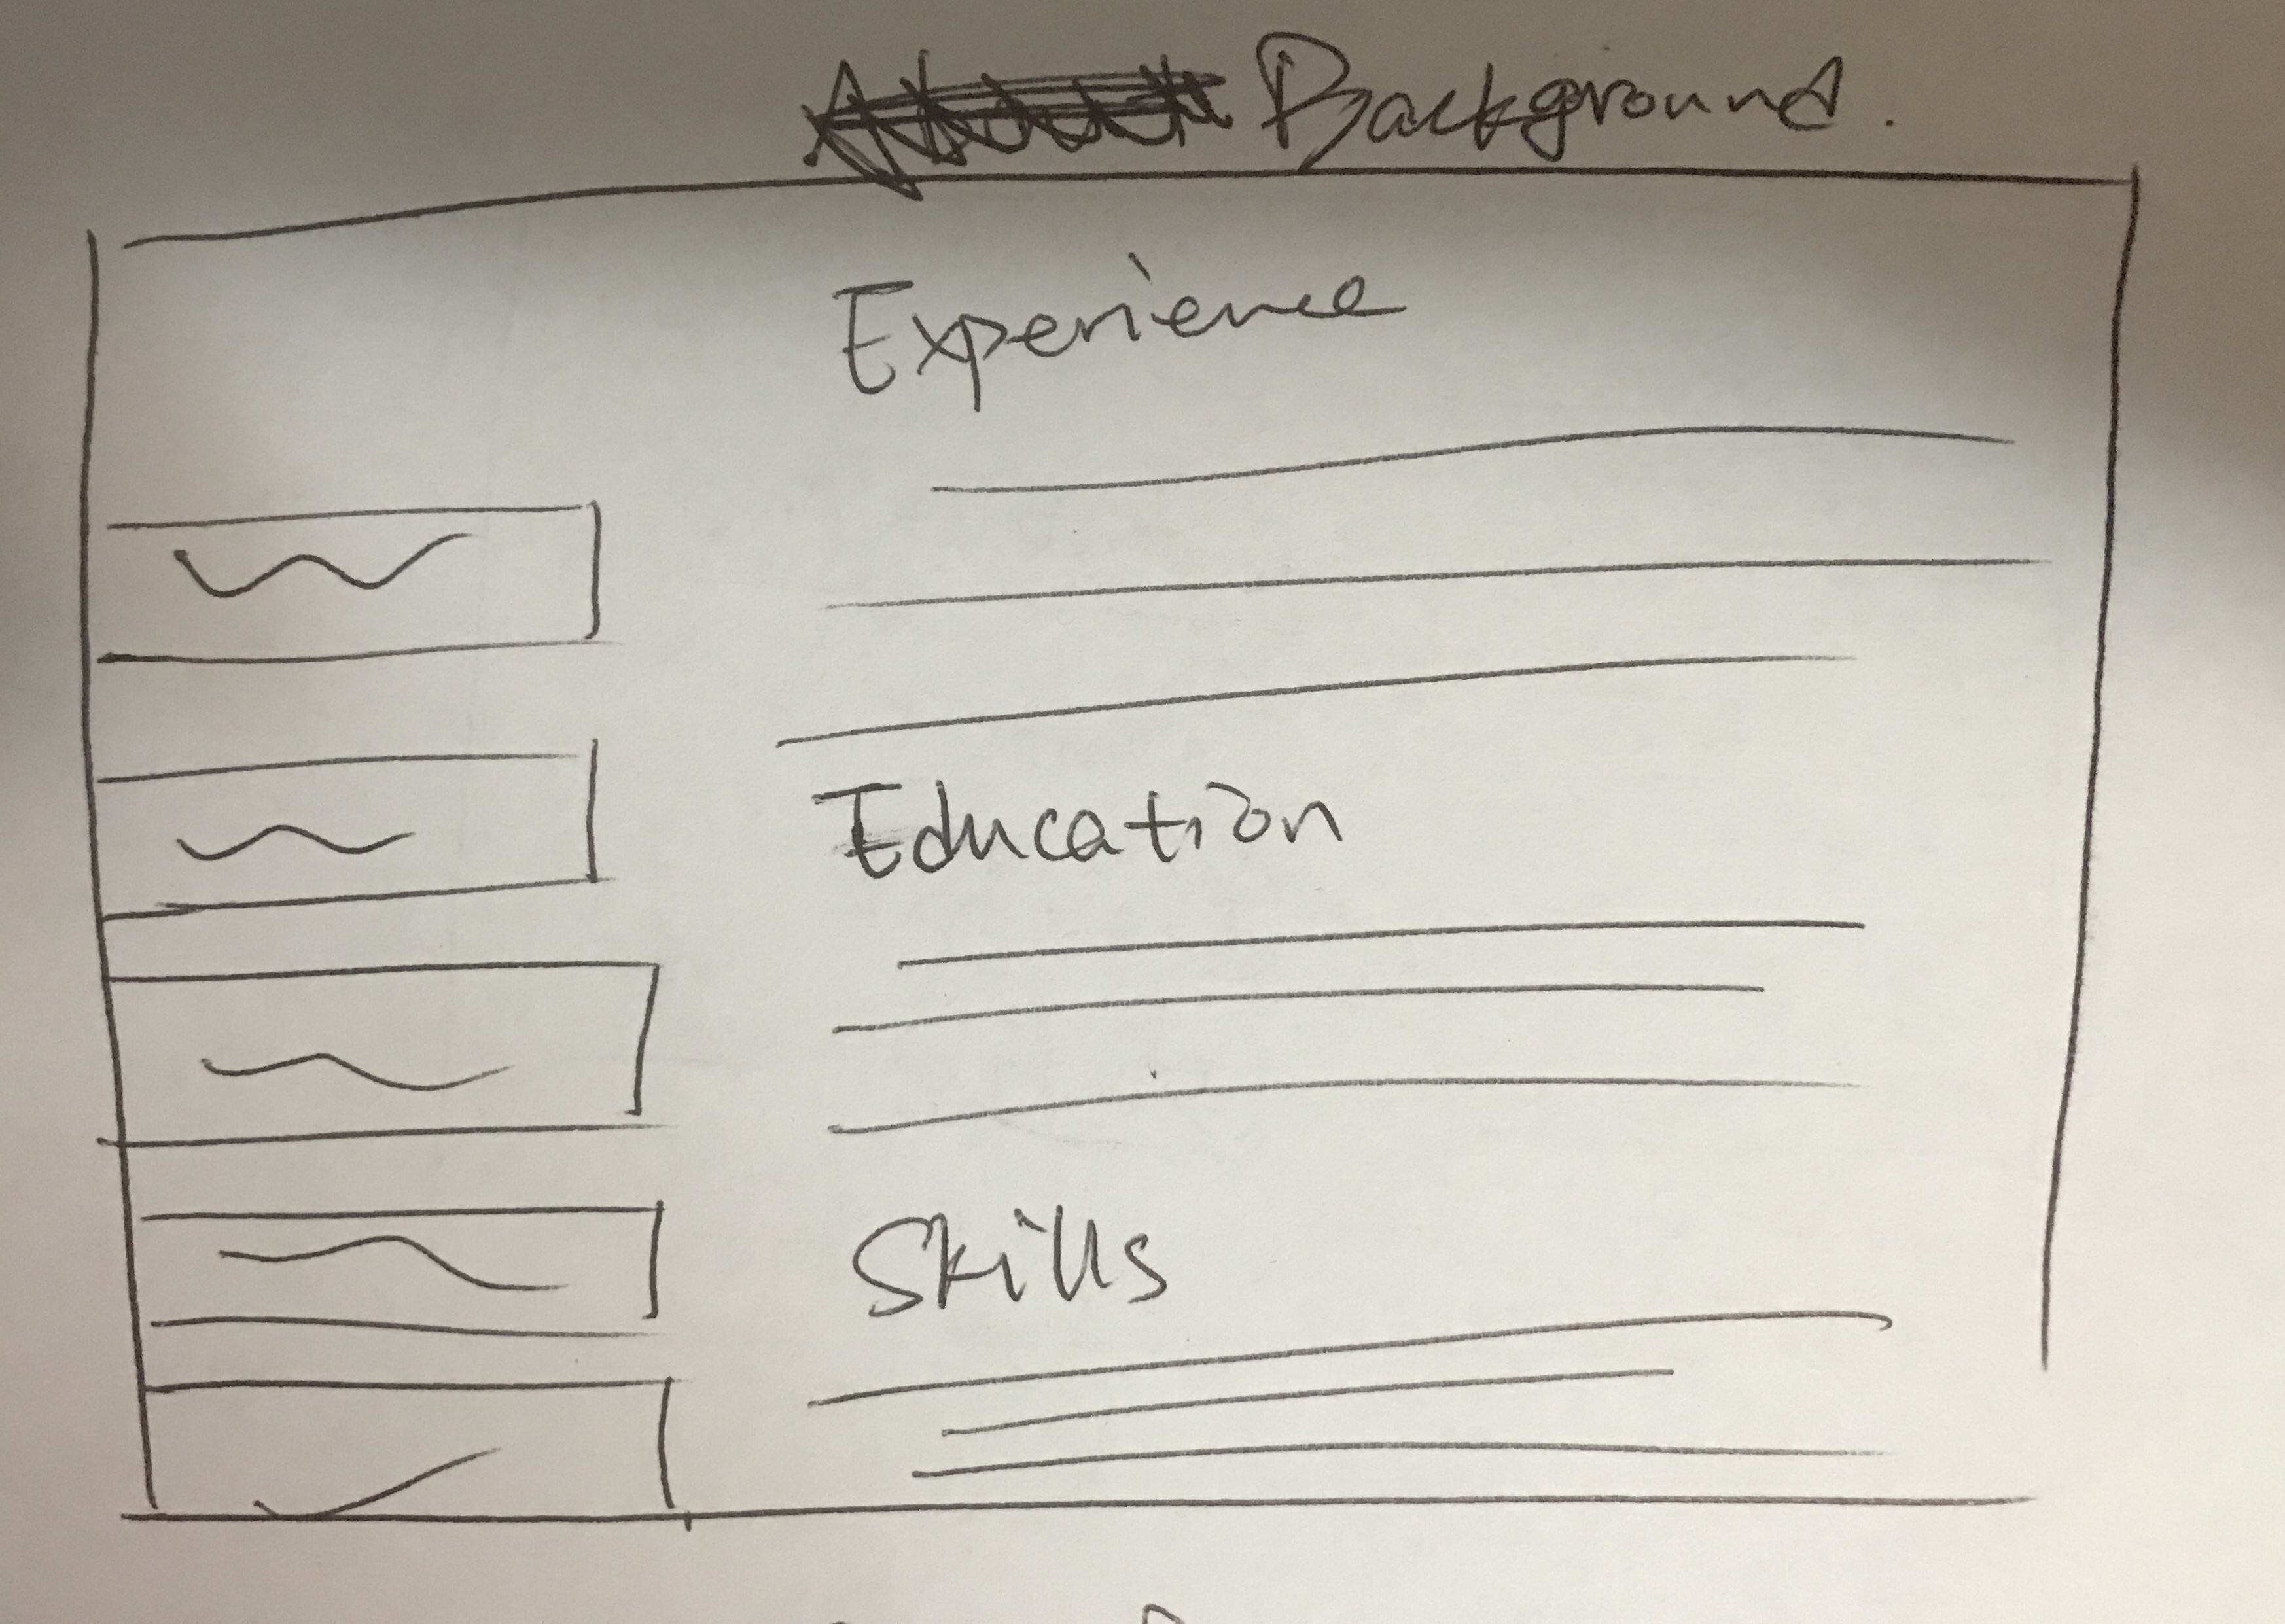 Background.
Experience
Education
Skills